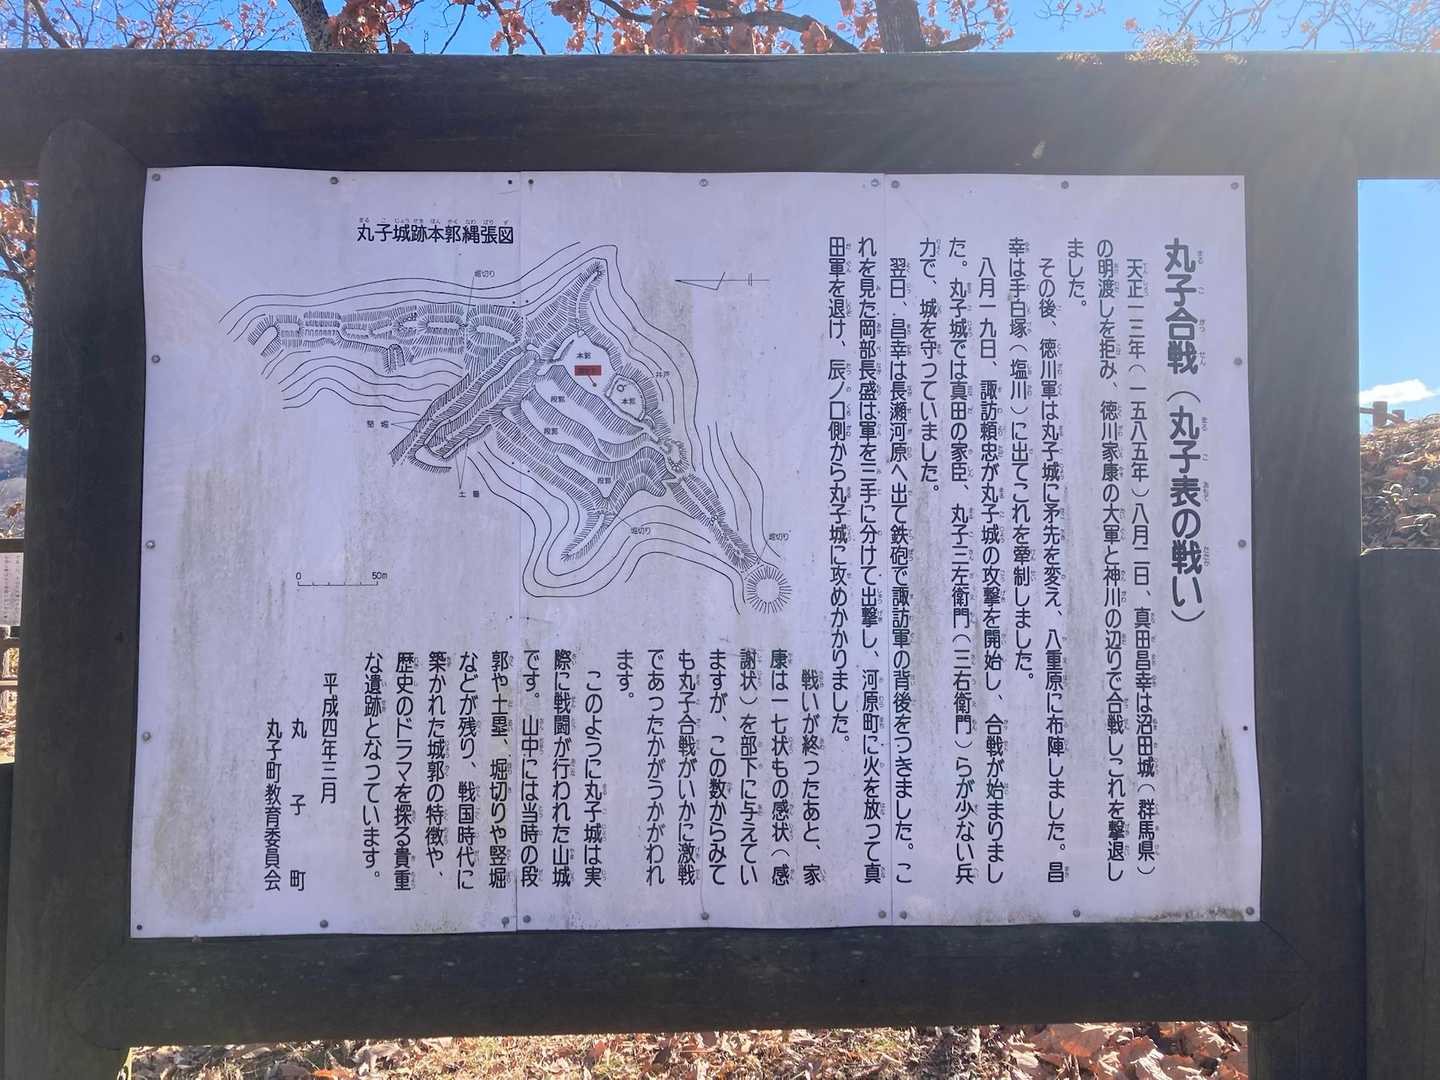 丸子合戦（丸子表の戦い）
天正一三年（一五八五年）八月二日、真田昌幸は沼田城（群馬県）
の明渡しを拒み、徳川家康の大軍と神川の辺りで合戦しこれを撃退し
ました。
その後、徳川軍は丸子城に矛先を変え、八重原に布陣しました。昌
幸は手白塚（塩川）に出てこれを牽制しました。
八月一九日、諏訪頼忠が丸子城の攻撃を開始し、合戦が始まりまし
た。丸子城では真田の家臣、丸子三左衛門（三右衛門）らが少ない兵
力で、城を守っていました。
翌日、昌幸は長瀬河原へ出て鉄砲で諏訪軍の背後をつきました。こ
れを見た岡部長盛は軍を三手に分けて出撃し、河原町に火を放って真
田軍を退け、辰ノ口側から丸子城に攻めかかりました。
戦いが終ったあと、家
康は一七状もの感状（感
謝状）を部下に与えてい
ますが、この数からみて
も丸子合戦がいかに激戦
であったかがうかがわれ
ます。
このように丸子城は実
際に戦闘が行われた山城
です。山中には当時の段
郭や土塁、堀切りや竪堀
などが残り、戦国時代に
築かれた城郭の特徴や、
歴史のドラマを探る貴重
な遺跡となっています。
平成四年三月
丸子町
丸子町教育委員会
丸子城跡本郭縄張図
堀切り
本郭
井戸
本郭
段郭
段郭
段郭
竪堀
土塁
堀切り
堀切り
0 50m